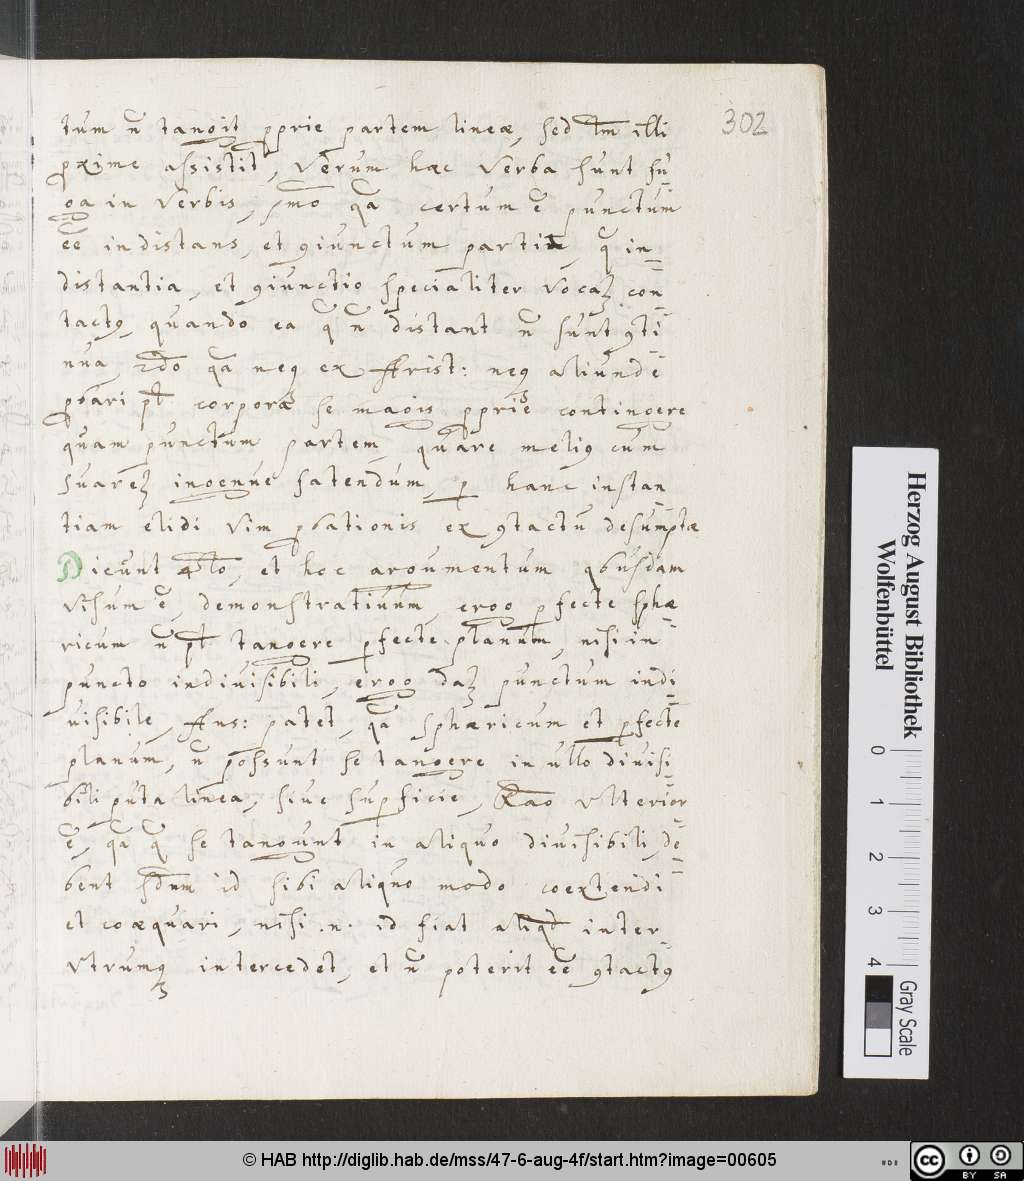 302
tum n̄ tangit pprie partem lineæ, sed tm̄ illi
proxime assistit, Verum hæc verba sunt fu-
ga in verbis, pmo qa certum ē punctum
ēē indistans, et 9iunctum parti, q̄ in-
distantia, et 9iunctio specialiter vocaꝫ con-
tact9, quando ea q̄ n̄ distant n̄ sunt 9ti-
nua, 2do qa neq ex Arist: neq aliunde
pbari pt corpora se magis pprie contingere
quam punctum partem, quare meli9 cum
Suareꝫ ingenue fatendum, p hanc instan-
tiam elidi vim pbationis ex 9tactu desumptæ
Dicunt 4to, et hoc argumentum qbusdam
visum ē, demonstratiuum, ergo pfecte sphæ-
ricum n̄ pt tangere pfecte planum, nisi in
puncto indiuisibili, ergo daꝫ punctum indi-
uisibile, Ans: patet, qa sphæricum et pfecte
planum, n̄ possunt se tangere in ullo diuisi-
bili puta linea, siue supficie, Rao vlterior
ē, qa q̄ se tangunt in aliquo diuisibili, de-
bent sdum id sibi aliquo modo coextendi
et coæquari, nisi .n. id fiat aliqd inter-
vtrumqꝫ intercedet, et n̄ poterit ēē 9tact9
Herzog August Bibliothek
Wolfenbüttel
0 1 2 3 4
Gray Scale
© HAB http://diglib.hab.de/mss/47-6-aug-4f/start.htm?image=00605
cc BY SA